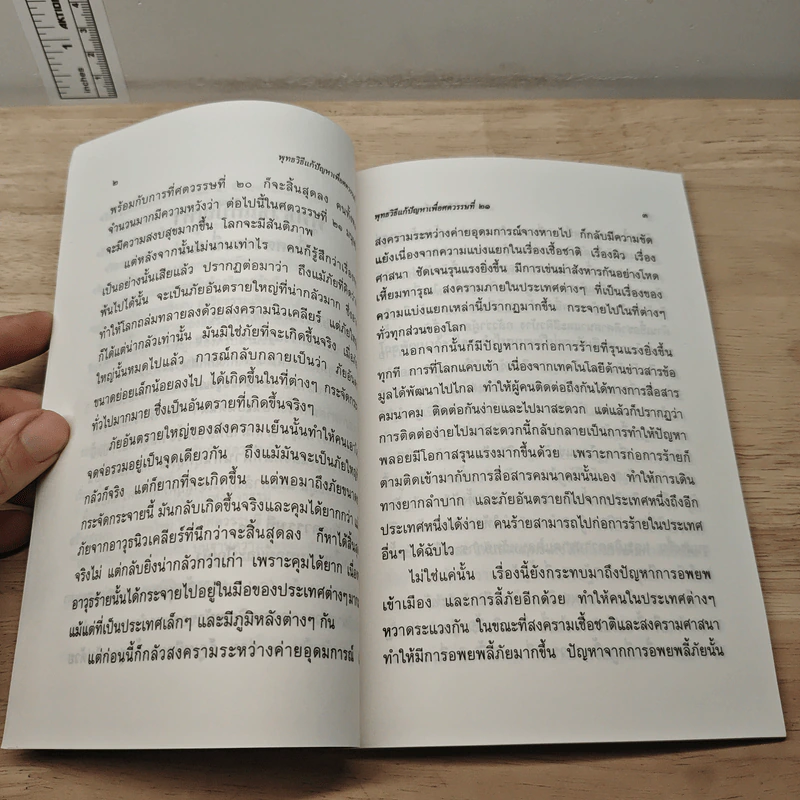 AKTION
inches
1
2
3
4
พุทธวิธีแก้ปัญหาเพื่อศตวรรษ
๒
พร้อมกับการที่ศตวรรษที่ ๒๐ ก็จะสิ้นสุดลง
จำนวนมากมีความหวังว่า ต่อไปนี้ในศตวรรษที่ ๒๑
จะมีความสงบสุขมากขึ้น โลกจะมีสันติภาพ
แต่หลังจากนั้นไม่นานเท่าไร คนก็รู้สึกว่า
เป็นอย่างนั้นเสียแล้ว ปรากฏต่อมาว่า ถึงแม้ภัยที่
พ้นไปได้นั้น จะเป็นภัยอันตรายใหญ่ที่น่ากลัวมาก
ทำให้โลกถล่มทลายลงด้วยสงครามนิวเคลียร์ แต่ภัย
ก็ได้แต่น่ากลัวเท่านั้น มันมิใช่ภัยที่จะเกิดขึ้นจริง
ใหญ่นั้นหมดไปแล้ว การณ์กลับกลายเป็นว่า ภัย
ขนาดย่อยเล็กน้อยลงไป ได้เกิดขึ้นในที่ต่างๆ กระจัด
ทั่วไปมากมาย ซึ่งเป็นอันตรายที่เกิดขึ้นจริงๆ
ภัยอันตรายใหญ่ของสงครามเย็นนั้นทำให้คน
จดจ่อรวมอยู่เป็นจุดเดียวกัน ถึงแม้มันจะเป็นภัยใหญ่
กลัวก็จริง แต่ก็ยากที่จะเกิดขึ้น แต่พอมาถึงภัยขนาด
กระจัดกระจายนี้ มันกลับเกิดขึ้นจริงและคุมได้ยากกว่า
ภัยจากอาวุธนิวเคลียร์ที่นึกว่าจะสิ้นสุดลง ก็หาได้สิ้น
จริงไม่ แต่กลับยิ่งน่ากลัวกว่าเก่า เพราะคุมได้ยาก
อาวุธร้ายนั้นได้กระจายไปอยู่ในมือของประเทศต่างๆ
แม้แต่ที่เป็นประเทศเล็กๆ และมีภูมิหลังต่างๆ กัน
แต่ก่อนนี้ก็กลัวสงครามระหว่างค่ายอุดมการณ์
พุทธวิธีแก้ปัญหาเพื่อศตวรรษที่ ๒๑
๓
สงครามระหว่างค่ายอุดมการณ์จางหายไป ก็กลับมีความขัด
แย้งเนื่องจากความแบ่งแยกในเรื่องเชื้อชาติ เรื่องผิว เรื่อง
ศาสนา ชัดเจนรุนแรงยิ่งขึ้น มีการเข่นฆ่าสังหารกันอย่างโหด
เหี้ยมทารุณ สงครามภายในประเทศต่างๆ ที่เป็นเรื่องของ
ความแบ่งแยกเหล่านี้ปรากฏมากขึ้น กระจายไปในที่ต่างๆ
ทั่วทุกส่วนของโลก
นอกจากนั้นก็มีปัญหาการก่อการร้ายที่รุนแรงยิ่งขึ้น
ทุกที การที่โลกแคบเข้า เนื่องจากเทคโนโลยีด้านข่าวสารข้อ
มูลได้พัฒนาไปไกล ทำให้ผู้คนติดต่อถึงกันได้ทางการสื่อสาร
คมนาคม ติดต่อกันง่ายและไปมาสะดวก แต่แล้วก็ปรากฏว่า
การติดต่อง่ายไปมาสะดวกนี้กลับกลายเป็นการทำให้ปัญหา
พลอยมีโอกาสรุนแรงมากขึ้นด้วย เพราะการก่อการร้ายก็
ตามติดเข้ามากับการสื่อสารคมนาคมนั้นเอง ทำให้การเดิน
ทางยากลำบาก และภัยอันตรายก็ไปจากประเทศหนึ่งถึงอีก
ประเทศหนึ่งได้ง่าย คนร้ายสามารถไปก่อการร้ายในประเทศ
อื่นๆ ได้ฉับไว
ไม่ใช่แค่นั้น เรื่องนี้ยังกระทบมาถึงปัญหาการอพยพ
เข้าเมือง และการลี้ภัยอีกด้วย ทำให้คนในประเทศต่างๆ
หวาดระแวงกัน ในขณะที่สงครามเชื้อชาติและสงครามศาสนา
ทำให้มีการอพยพลี้ภัยมากขึ้น ปัญหาจากการอพยพลี้ภัยนั้น